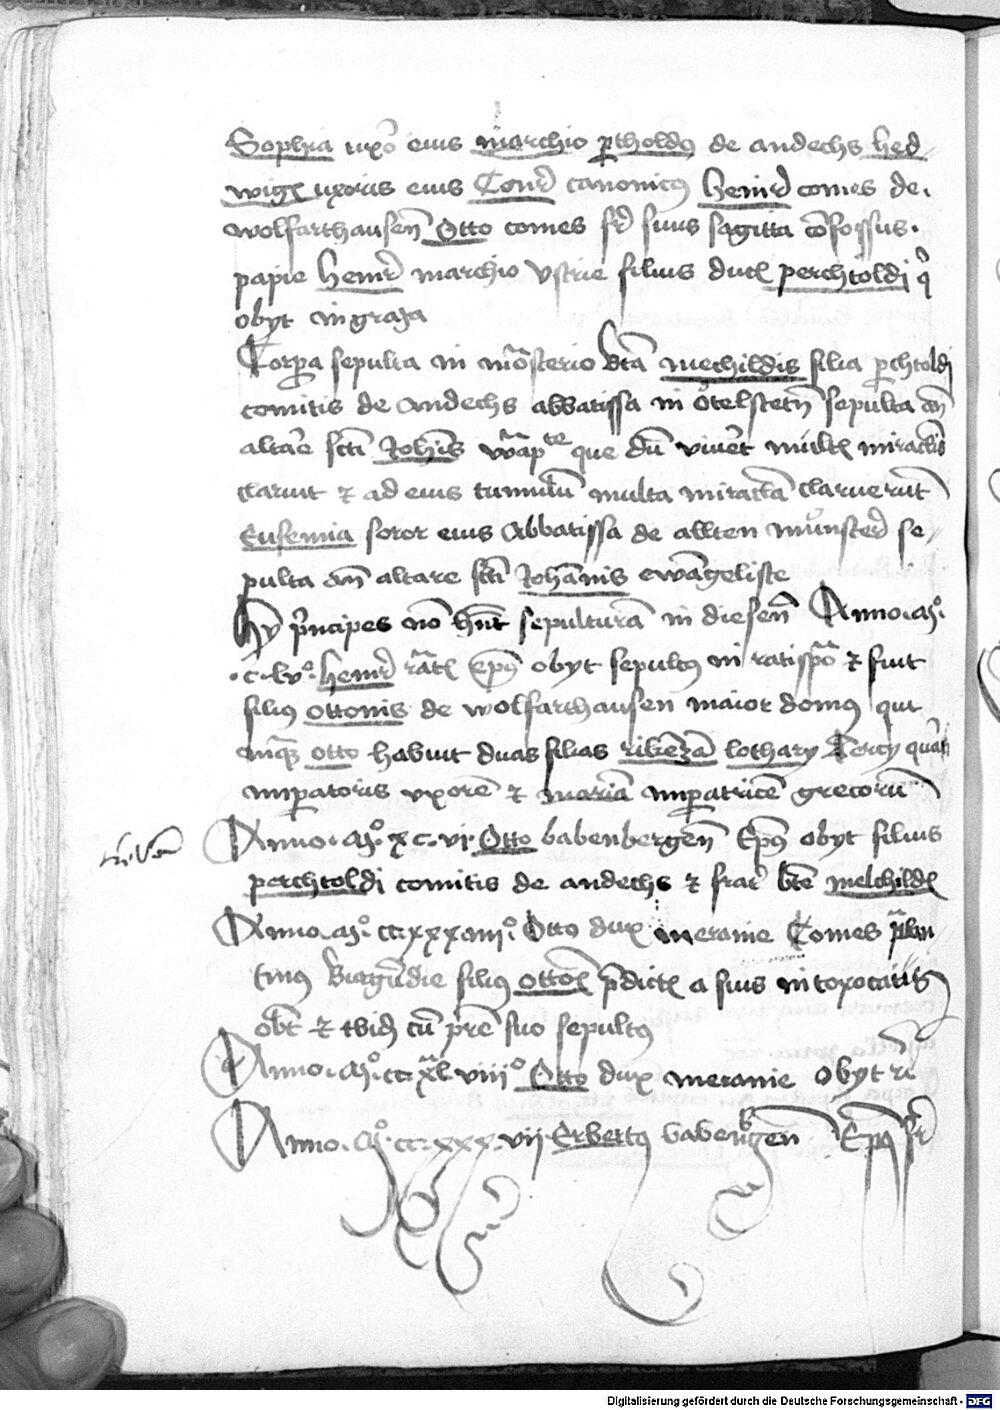 Sophia uxor eius marchio pertholdus de andechs hed
wigis uxoris eius Conrad canonicus heinrich comes de
wolfarthausen Otto comes frater suus sagitta confossus
papie heinrich marchio ystrie filius ducis perchtoldi q
obyt in
Corpora sepulta in monasterio beata mechildis filia perchtoldi
comitis de Andechs abbatissa in otelstetn sepulta an
altare sancti Johannis que dum viveret multis miraculis
claruit et ad eius tumulum multa miracula claruerunt
Eufemia soror eius Abbatissa de allten munster se
pulta an altare sancti Johannis ewangeliste
Hy principes non habent sepulturam in diesen Anno. mo.
.c.lvo. heinrich ratis Epus obyt sepultus in ratispona et fuit
filius ottonis de wolfarthausen maior domus qui
otto habuit duas filias rikenzam lothary Tercy
imperatoris uxorem et mariam imperatricem grecorum
Anno. mo. xc. vi. Otto babenbergen Epus obyt filius
perchtoldi comitis de andechs et frater beate melchildis
Anno. mo. cc.xxx.iiiio. Otto dux meranie Comes palan
tinus Burgundie filius ottonis predicti a suis intoxocatus
obiit et ibidem cum patre suo sepultus
Anno. mo. cc. xl. viiio. Otto dux meranie obyt
Anno. mo. cc. xxx. vii. Erbertus babenbergen Epus fr